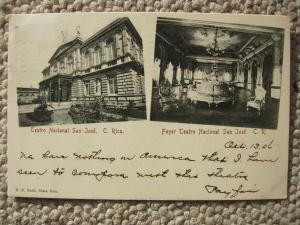 Teatro Nacional San José. C. Rica.
Foyer Teatro Nacional San José, C. R.
Oct. 13. 06
have nothing in America that I have
seen to compare with this theatre